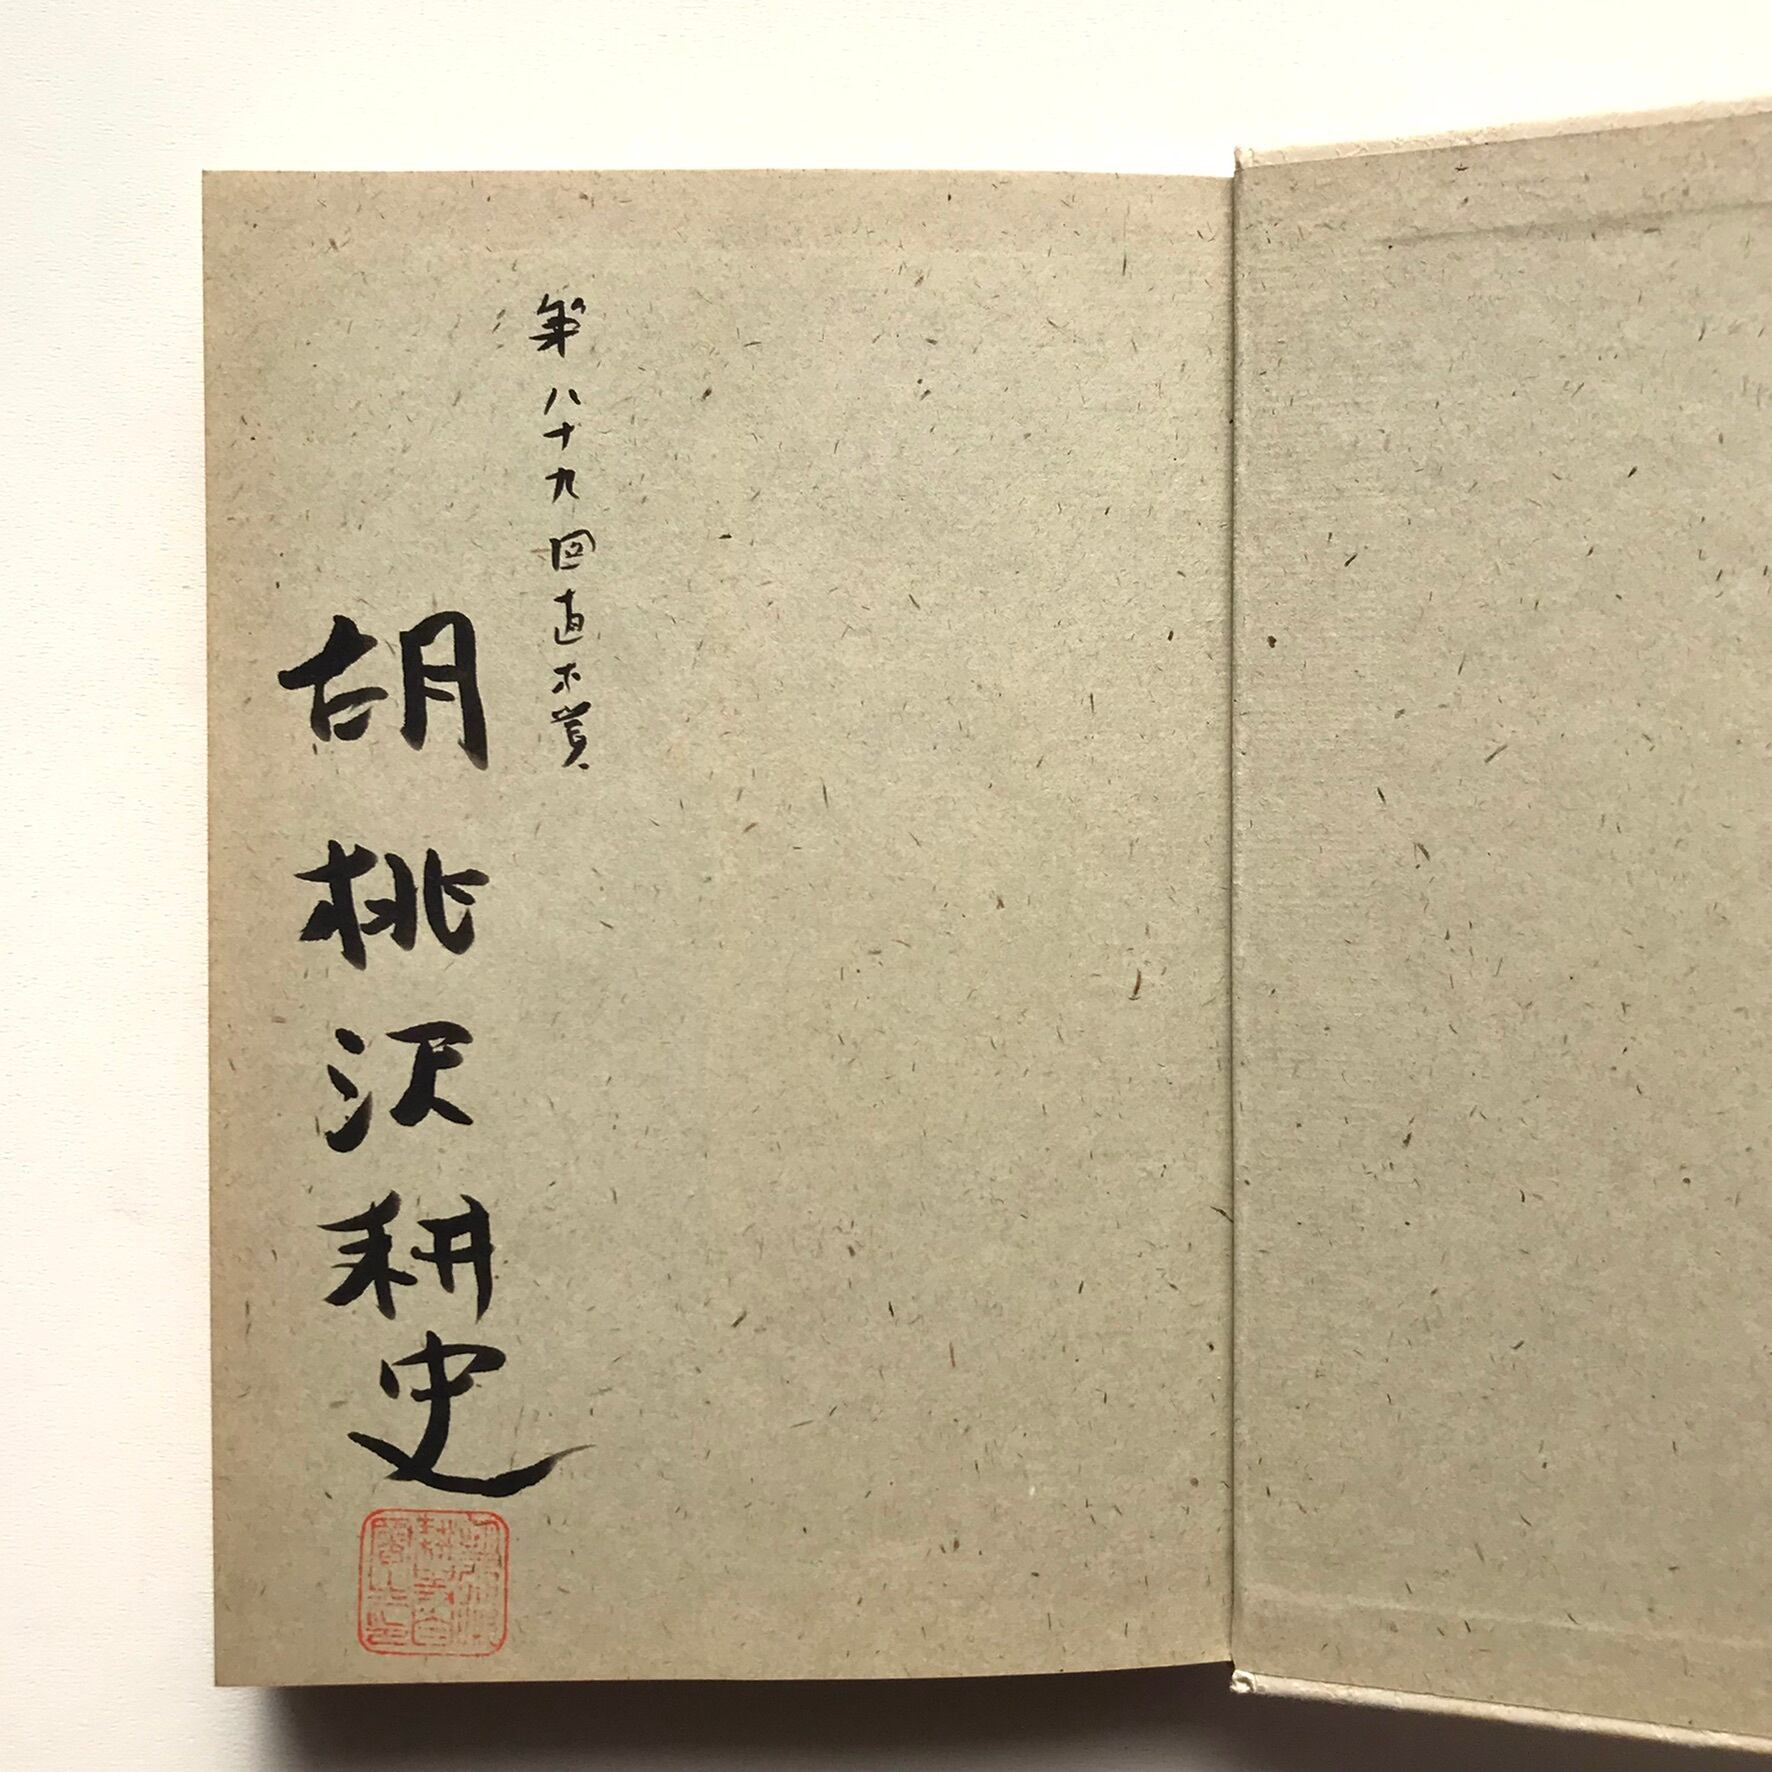 第八十九回直木賞
胡桃沢耕史